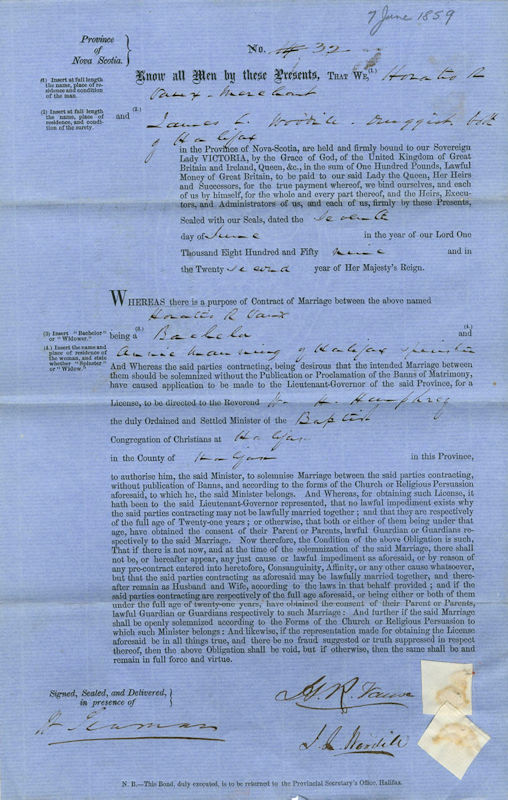 7 June 1859
Province
of
Nova Scotia.
No. 32
(1) Insert at full length
the name, place of re-
sidence and condition
of the man.
Know all Men by these Presents, THAT WE, (1.) Horatio R
Merchant
(2) Insert at full length
the name, place of
residence, and condi-
tion of the surety.
and (2.) James L. Woodill. Druggist both
of Halifax
in the Province of Nova-Scotia, are held and firmly bound to our Sovereign
Lady VICTORIA, by the Grace of God, of the United Kingdom of Great
Britain and Ireland, Queen, &c., in the sum of One Hundred Pounds, Lawful
Money of Great Britain, to be paid to our said Lady the Queen, Her Heirs
and Successors, for the true payment whereof, we bind ourselves, and each
of us by himself, for the whole and every part thereof, and the Heirs, Execu-
tors, and Administrators of us, and each of us, firmly by these Presents,
Sealed with our Seals, dated the Seventh
day of June in the year of our Lord One
Thousand Eight Hundred and Fifty nine and in
the Twenty second year of Her Majesty's Reign.
WHEREAS there is a purpose of Contract of Marriage between the above named
Horatio R
(3) Insert "Bachelor"
or "Widower."
being a (3.) Bachelor and (4.)
(4.) Insert the name and
place of residence of
the woman, and state
whether "Spinster"
or "Widow."
Annie Manning of Halifax spinster
And Whereas the said parties contracting, being desirous that the intended Marriage between
them should be solemnized without the Publication or Proclamation of the Banns of Matrimony,
have caused application to be made to the Lieutenant-Governor of the said Province, for a
License, to be directed to the Reverend H. Humphrey
the duly Ordained and Settled Minister of the Baptist
Congregation of Christians at Halifax
in the County of Halifax in this Province,
to authorise him, the said Minister, to solemnise Marriage between the said parties contracting,
without publication of Banns, and according to the forms of the Church or Religious Persuasion
aforesaid, to which he, the said Minister belongs. And Whereas, for obtaining such License, it
hath been to the said Lieutenant-Governor represented, that no lawful impediment exists why
the said parties contracting may not be lawfully married together; and that they are respectively
of the full age of Twenty-one years; or otherwise, that both or either of them being under that
age, have obtained the consent of their Parent or Parents, lawful Guardian or Guardians re-
spectively to the said Marriage. Now therefore, the Condition of the above Obligation is such,
That if there is not now, and at the time of the solemnization of the said Marriage, there shall
not be, or hereafter appear, any just cause or lawful impediment as aforesaid, or by reason of
any pre-contract entered into heretofore, Consanguinity, Affinity, or any other cause whatsoever,
but that the said parties contracting as aforesaid may be lawfully married together, and there-
after remain as Husband and Wife, according to the laws in that behalf provided; and if the
said parties contracting are respectively of the full age aforesaid, or being either or both of them
under the full age of twenty-one years, have obtained the consent of their Parent or Parents,
lawful Guardian or Guardians respectively to such Marriage: And further if the said Marriage
shall be openly solemnized according to the Forms of the Church or Religious Persuasion to
which such Minister belongs: And likewise, if the representation made for obtaining the License
aforesaid be in all things true, and there be no fraud suggested or truth suppressed in respect
thereof, then the above Obligation shall be void, but if otherwise, then the same shall be and
remain in full force and virtue.
Signed, Sealed, and Delivered,
in presence of
H. R.
J. L. Woodill
N. B.—This Bond, duly executed, is to be returned to the Provincial Secretary's Office, Halifax.